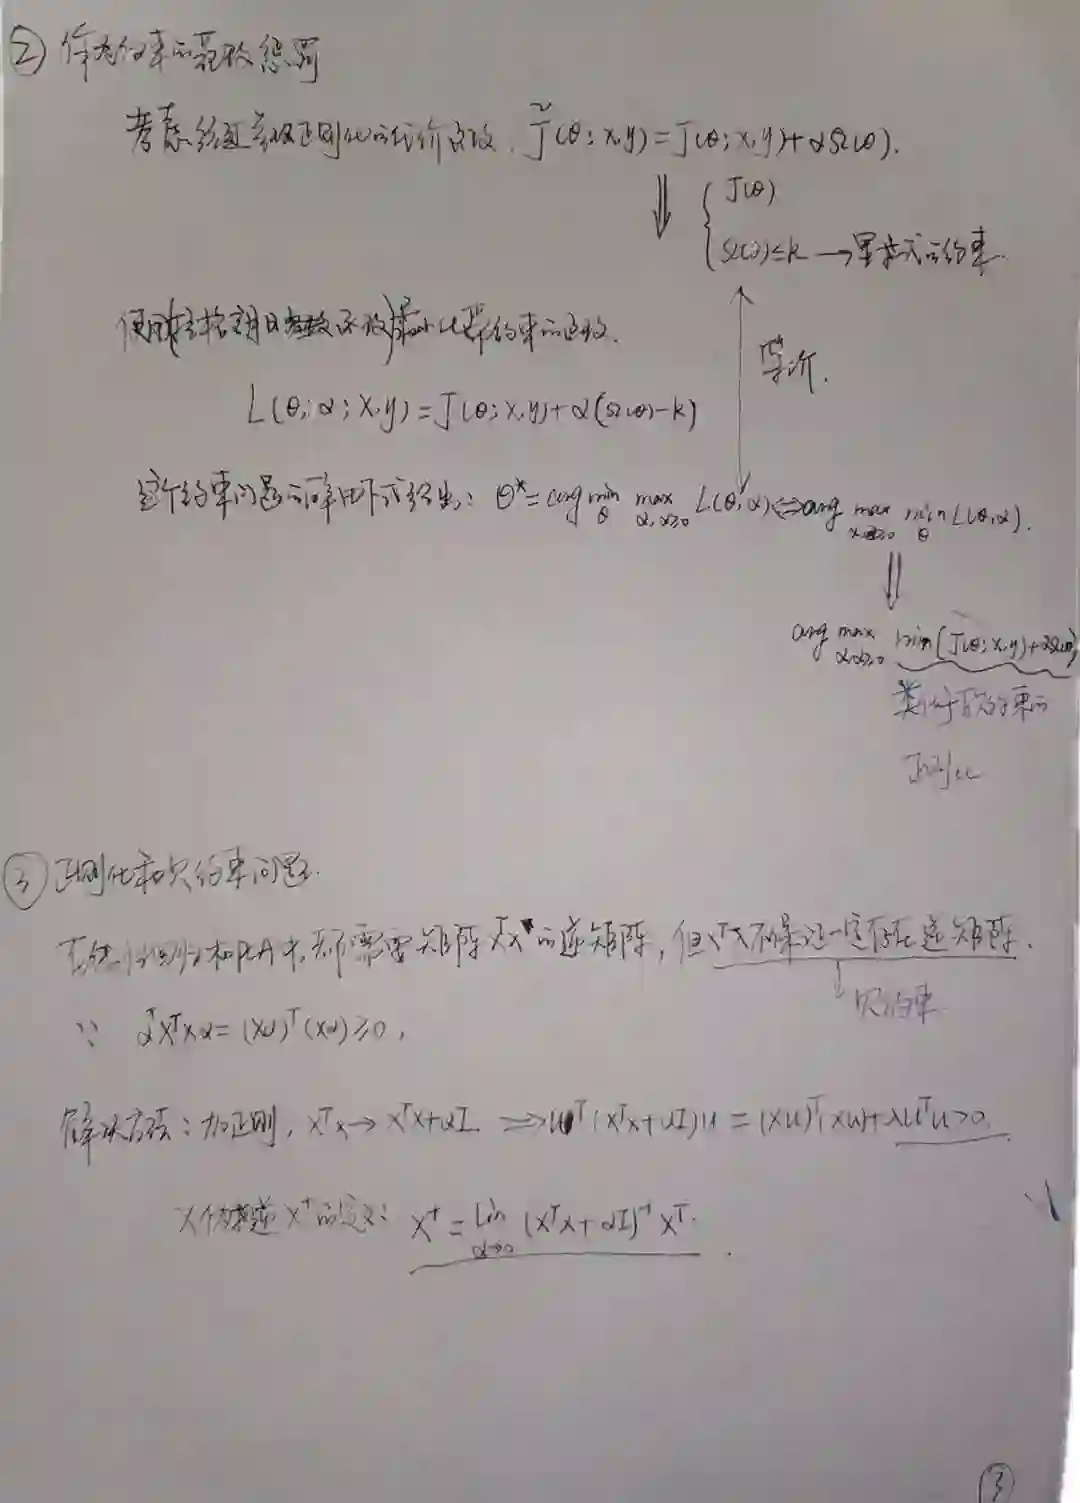 ② 作为约束的范数惩罚
考虑经过参数正则化的代价函数, J̃(θ;X,y)=J(θ;X,y)+αΩ(θ).
⇓ { J(θ)
Ω(θ)≤k → 显式的约束.
使用(拉格朗日函数)最小化带约束的函数.
等价.
L(θ,α;X,y)=J(θ;X,y)+α(Ω(θ)-k)
这个约束问题的解由下式给出: θ*=arg min_θ max_{α,α≥0} L(θ,α)⇔arg max min_θ L(θ,α).
⇓
arg max_{α,α≥0} min(J(θ;X,y)+αΩ(θ))
类似于
正则化
③ 正则化和欠约束问题.
线性回归和PCA中,都需要矩阵XᵀX的逆矩阵,但XᵀX不保证一定存在逆矩阵.
↓ 欠约束
∵ αᵀXᵀXα=(Xα)ᵀ(Xα)≥0,
解决方法:加正则, XᵀX→XᵀX+αI ⇒ uᵀ(XᵀX+αI)u=(Xu)ᵀ(Xu)+λuᵀu>0.
X伪逆X⁺的定义: X⁺=lim_{α→0} (XᵀX+αI)⁻¹Xᵀ.
③